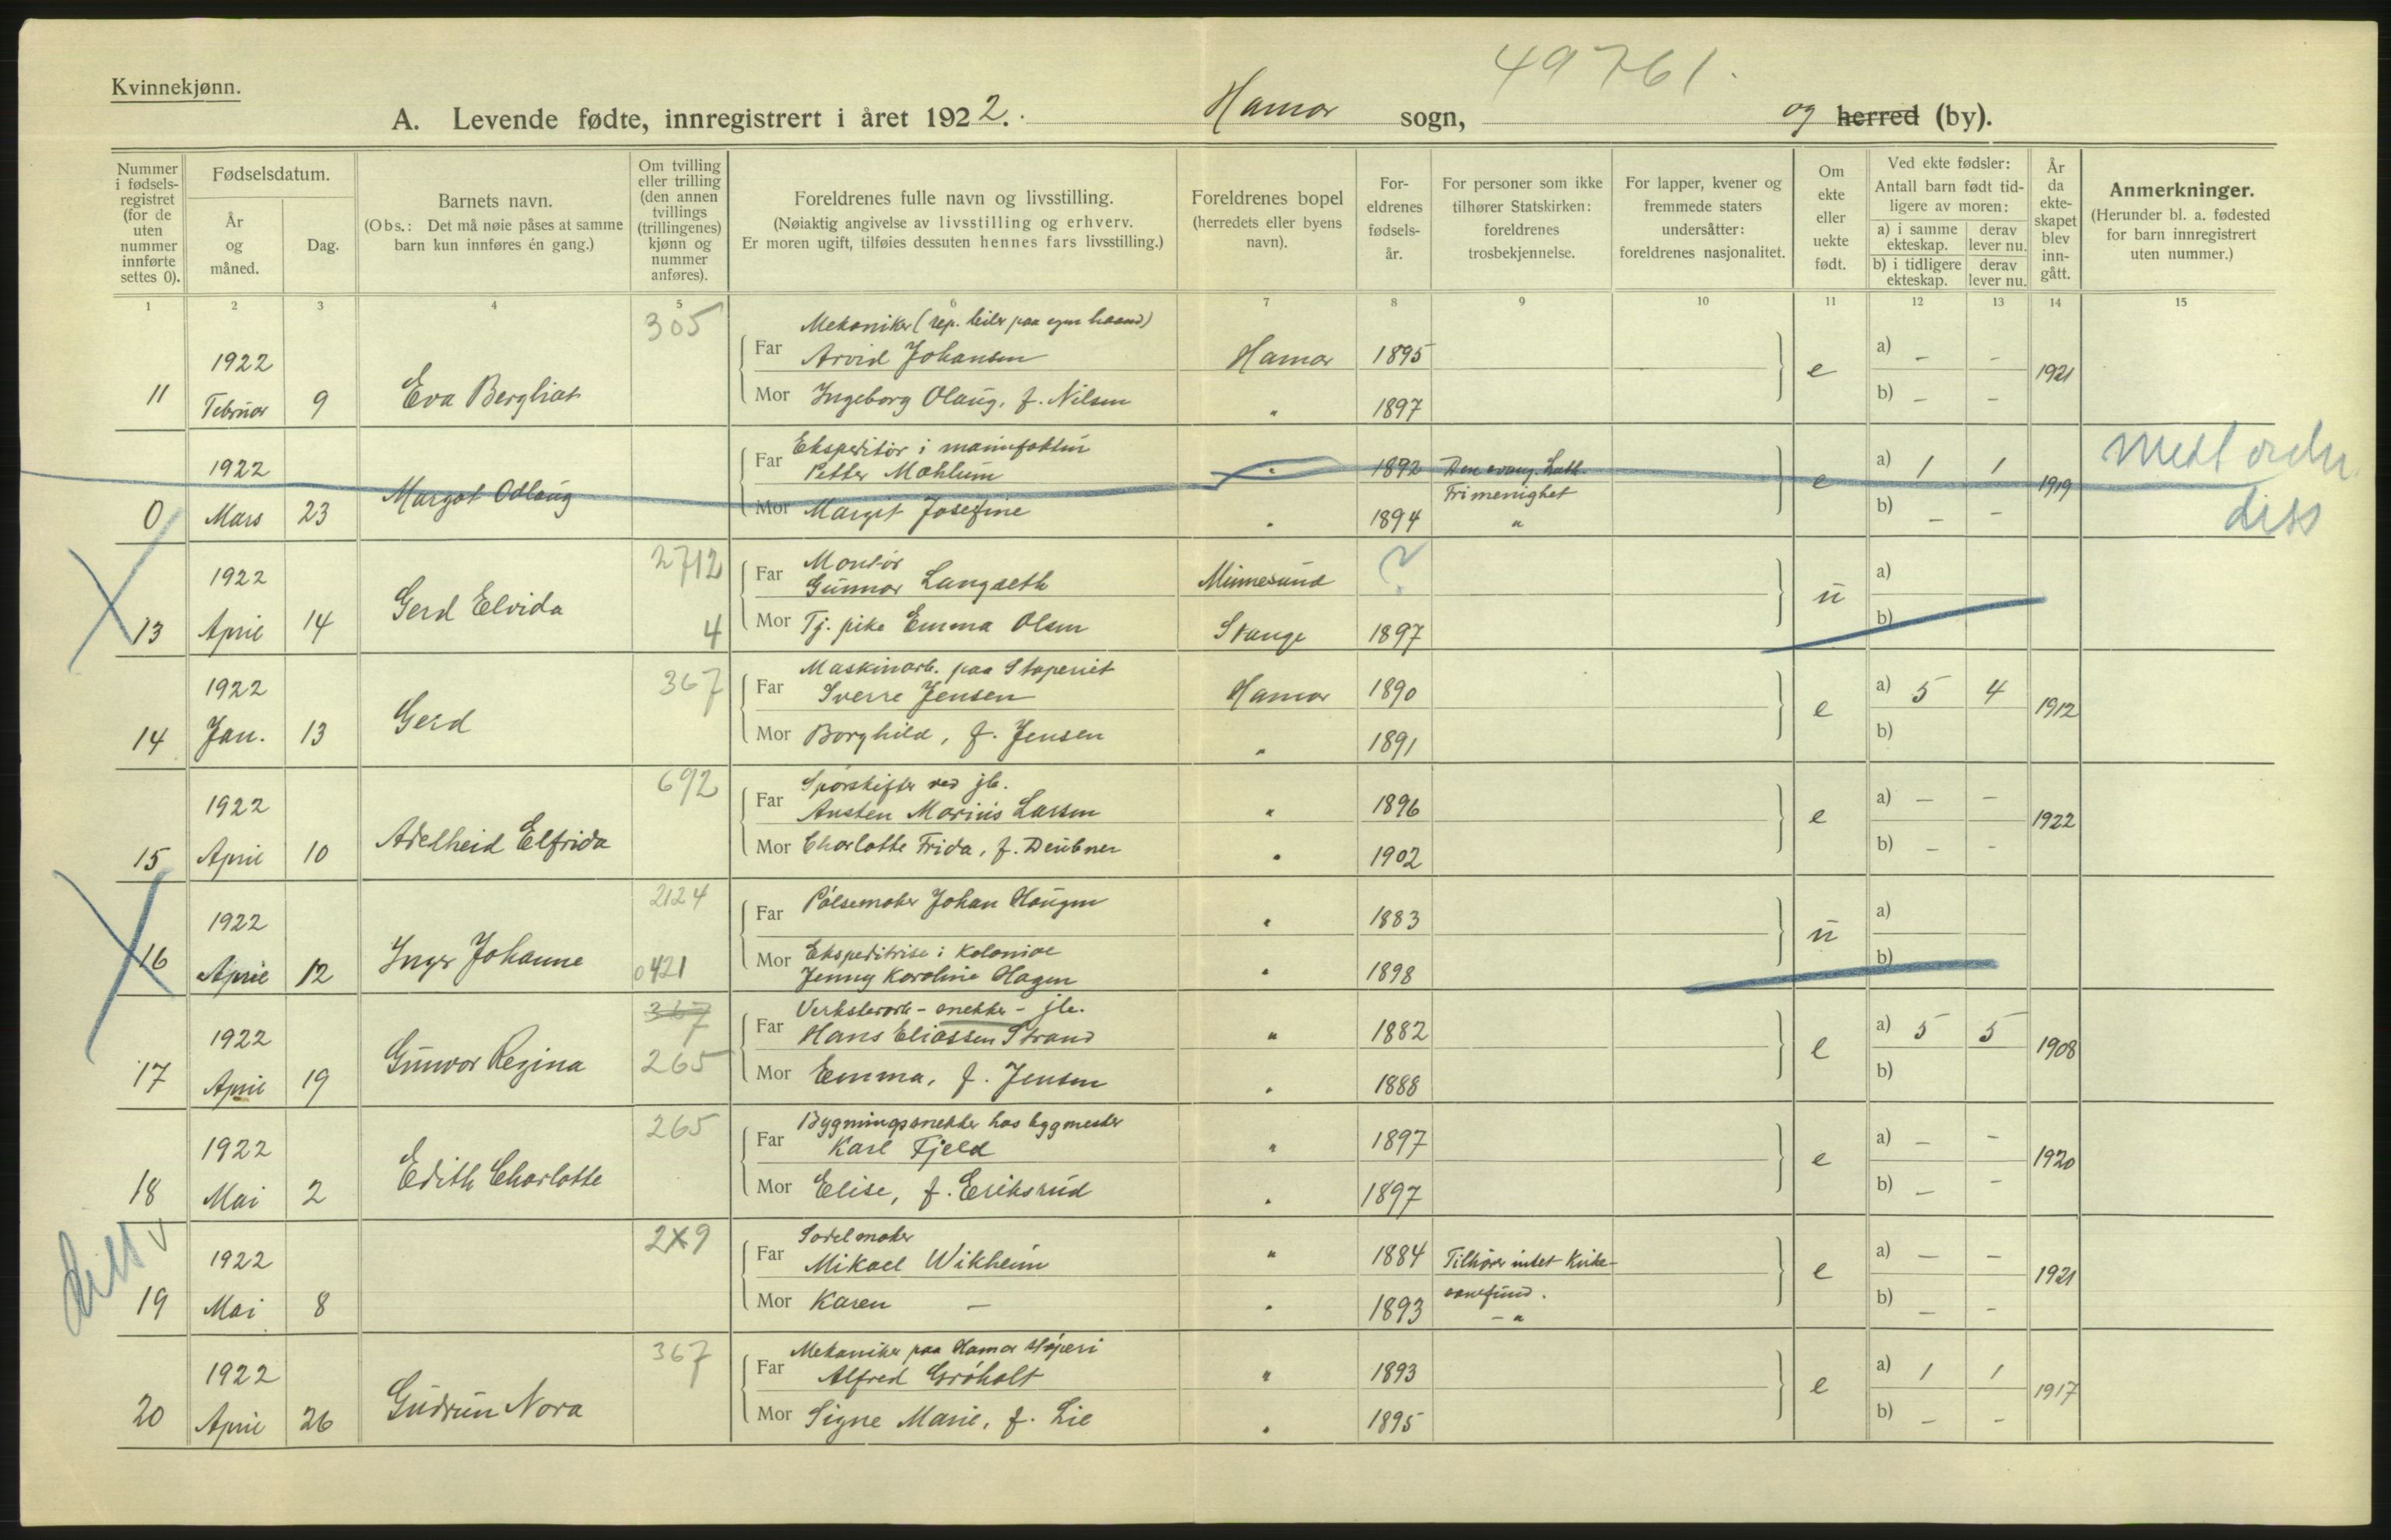 49761.
Kvinnekjønn.
A. Levende fødte, innregistrert i året 1922. Hamar sogn, og herred (by).
Nummer i fødsels-registret (for de uten nummer innførte settes 0).
Fødselsdatum.
År og måned.
Dag.
Barnets navn.
(Obs.: Det må nøie påses at samme barn kun innføres én gang.)
Om tvilling eller trilling (den annen tvillings (trillingenes) kjønn og nummer anføres).
Foreldrenes fulle navn og livsstilling.
(Nøiaktig angivelse av livsstilling og erhverv.
Er moren ugift, tilføies dessuten hennes fars livsstilling.)
Foreldrenes bopel (herredets eller byens navn).
For-eldrenes fødsels-år.
For personer som ikke tilhører Statskirken: foreldrenes trosbekjennelse.
For lapper, kvener og fremmede staters undersåtter: foreldrenes nasjonalitet.
Om ekte eller uekte født.
Ved ekte fødsler:
Antall barn født tid-ligere av moren:
a) i samme ekteskap. derav lever nu.
b) i tidligere ekteskap. derav lever nu.
År da ekte-skapet blev inn-gått.
Anmerkninger.
(Herunder bl. a. fødested for barn innregistrert uten nummer.)
1 2 3 4 5 6 7 8 9 10 11 12 13 14 15
305
Mekaniker (rep. biler paa egen haand)
1922 Far Arvid Johansen Hamar 1895 a) - -
11 Februar 9 Eva Bergliot e 1921
Mor Ingeborg Olaug, f. Nilsen " 1897 b) - -
Ekspeditör i manufaktur
1922 Far Petter Mæhlum " 1892 Den evang. Luth. a) 1 1
0 Mars 23 Margot Odlaug Frimenighet e 1919
Mor Margit Josefine " 1894 " b) - -
diss
2712
Montör
1922 Far Gunnar Langseth Minnesund ? a)
13 April 14 Gerd Elvida 4 u
Mor Tj. pike Emma Olsen Stange 1897 b)
367
Maskinarb. paa Støperiet
1922 Far Sverre Jensen Hamar 1890 a) 5 4
14 Jan. 13 Gerd e 1912
Mor Borghild, f. Jensen " 1891 b)
692
Sporskifter ved jb.
1922 Far Austen Marius Larsen " 1896 a) - -
15 April 10 Adelheid Elfrida e 1922
Mor Charlotte Frida, f. Deubner " 1902 b) - -
2124
1922 Far Pölsemaker Johan Haugen " 1883 a)
16 April 12 Inger Johanne 0421 u
Mor Ekspeditrise i Kolonial
Jenny Karoline Hagen " 1898 b)
367
Verkstedarb - snekker - jb.
1922 Far Hans Eliassen Strand " 1882 a) 5 5
17 April 19 Gunvor Regina 265 e 1908
Mor Emma, f. Jensen " 1888 b)
265
Bygningssnekker hos bygmester
1922 Far Karl Fjeld " 1897 a) - -
18 Mai 2 Edith Charlotte e 1920
Mor Elise, f. Eriksrud " 1897 b) - -
diss
2x9
Sadelmaker
1922 Far Mikael Wikheim " 1884 Tilhører intet Kirke- a) - -
19 Mai 8 samfund. e 1921
Mor Karen - " 1893 - " b) - -
367
Mekaniker paa Hamar støperi
1922 Far Alfred Gröholt " 1893 a) 1 1
20 April 26 Gudrun Nora e 1917
Mor Signe Marie, f. Lie " 1895 b) - -